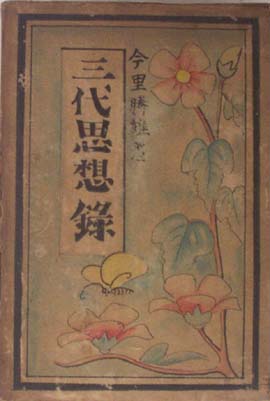 今里勝雄
三代思想錄